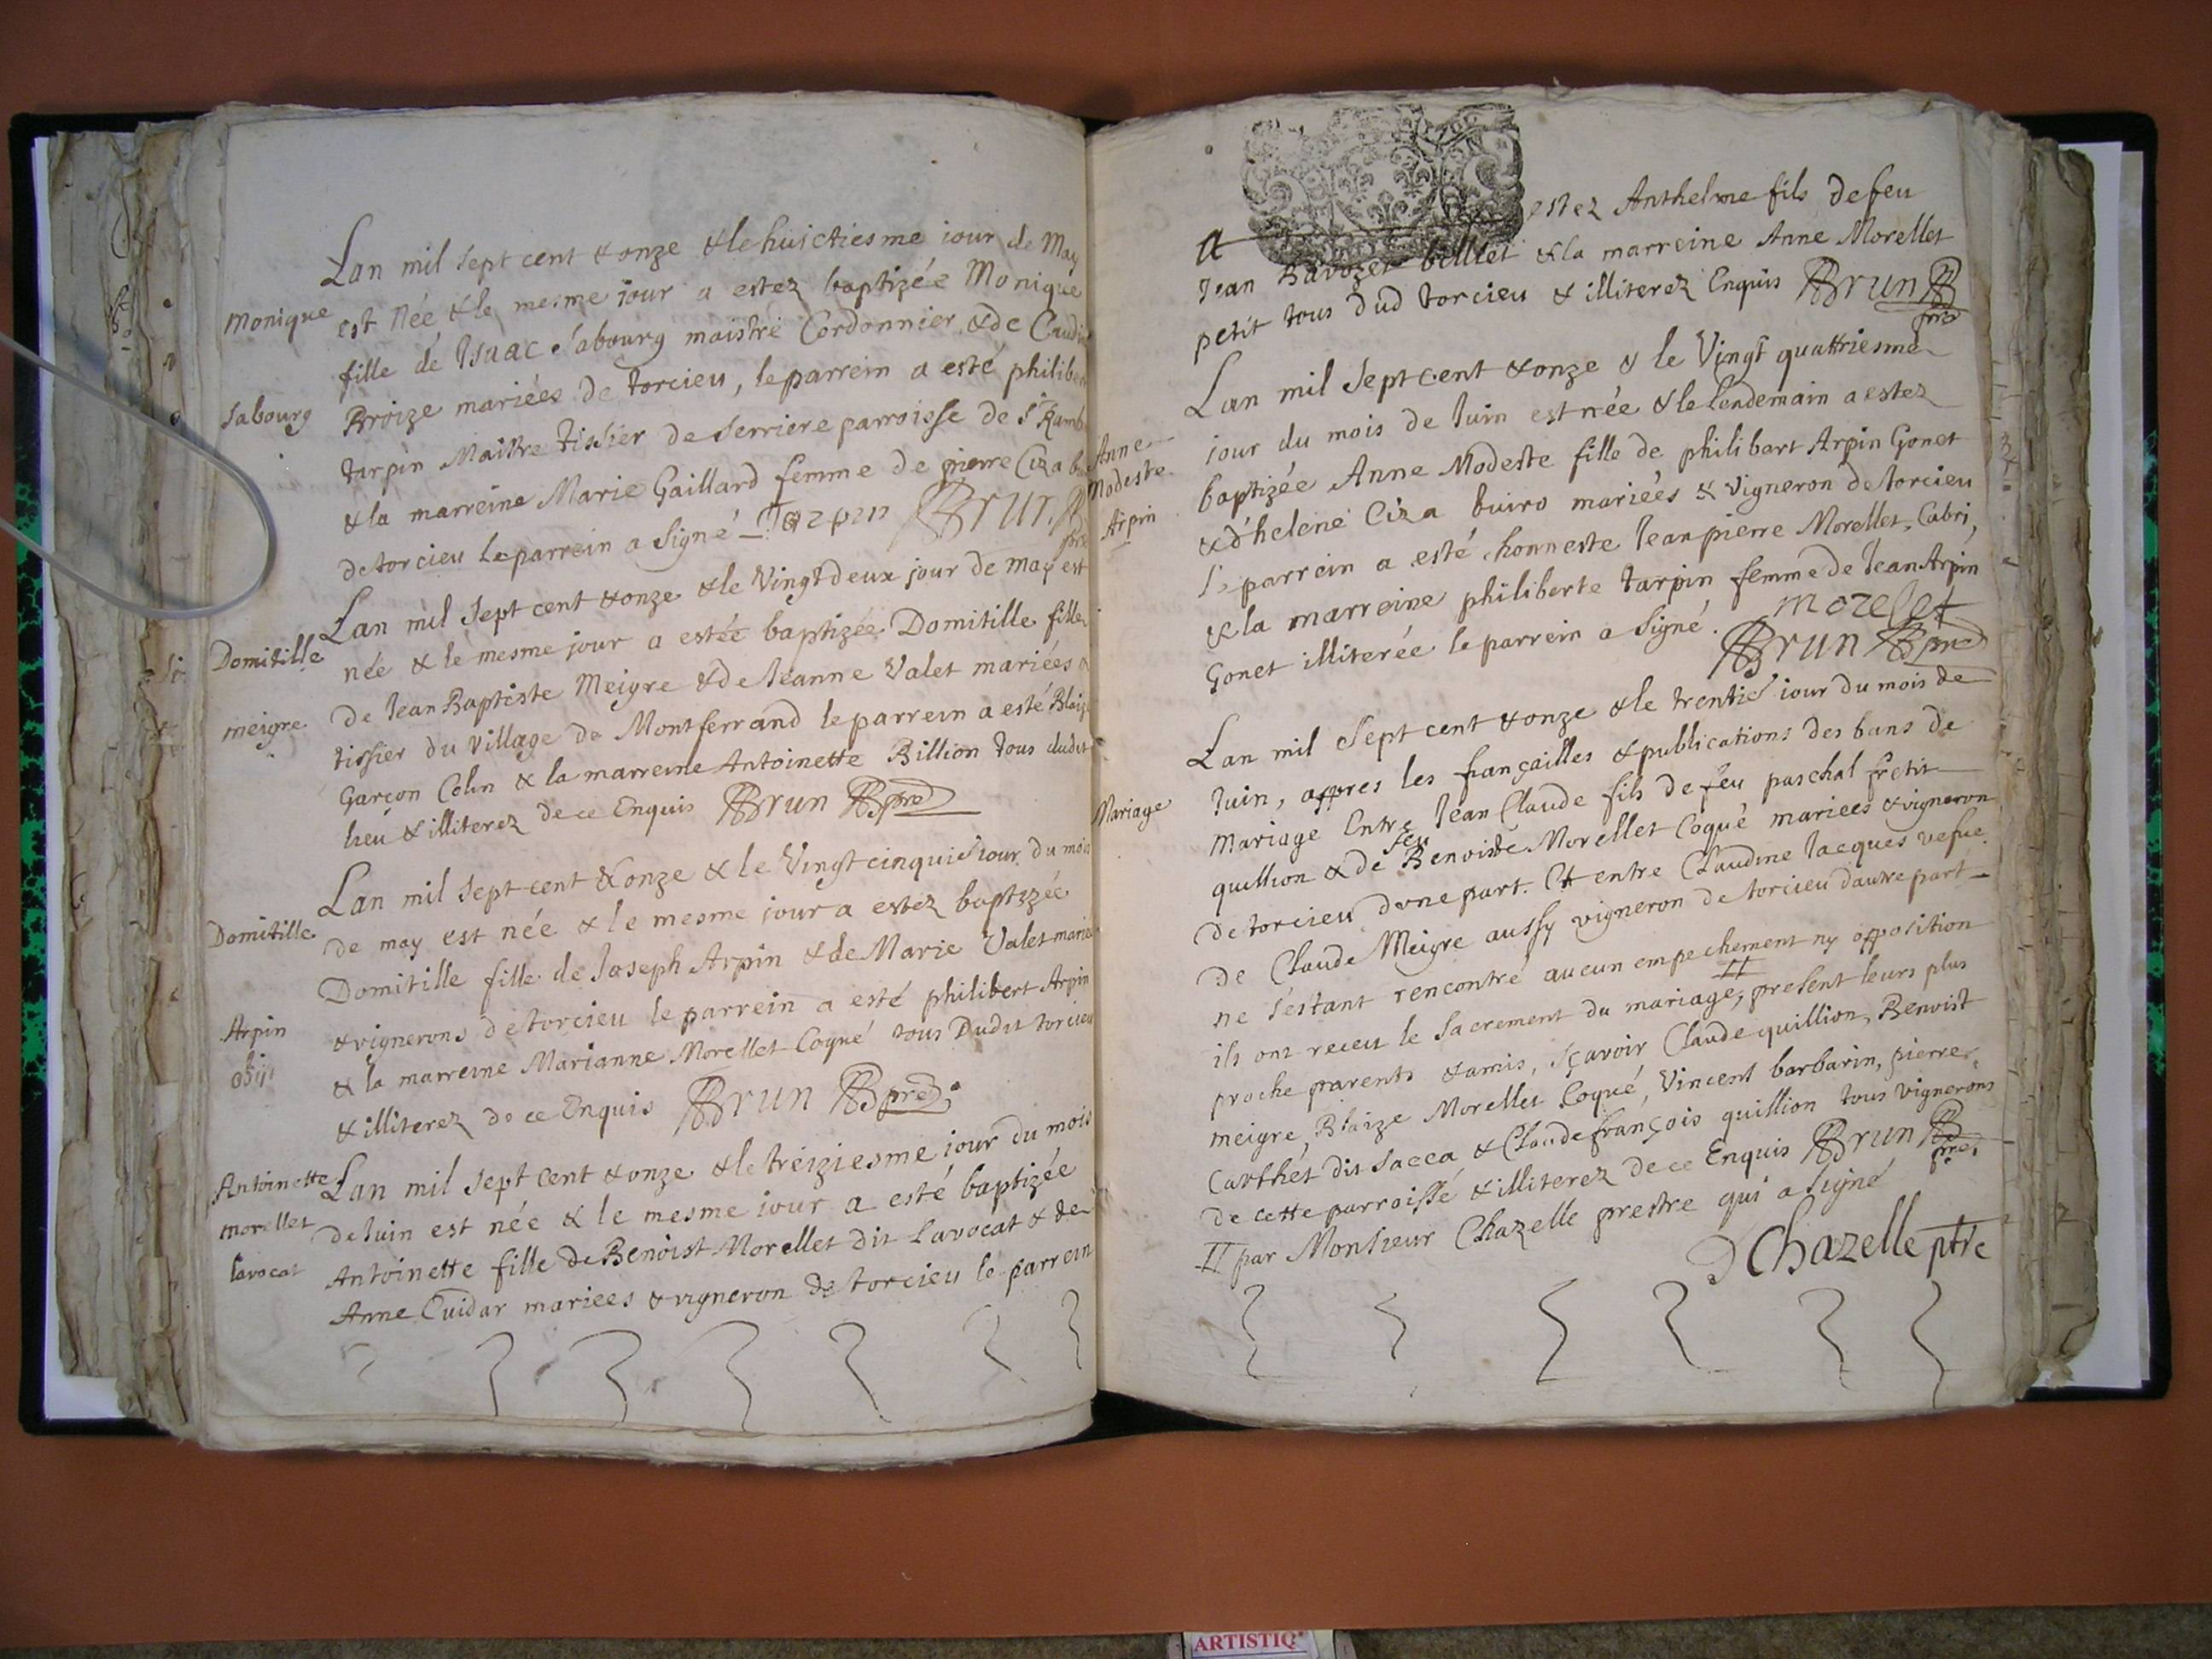 Lan mil sept cent & onze & le huictiesme iour de May
Monique
est Née & le mesme iour a estez baptizée Monique
fille de Isaac Sabourg maistre Cordonnier & de Claudi
Sabourg
Broize mariées de torcieu, le parrein a esté philiber
tarpin Maistre tissier de Serriere parroisse de St Ramb
& la marreine Marie Gaillard femme de pierre Ciza
de torcieu le parrein a signé Tarpin Brun
Lan mil sept cent & onze & le Vingt deux jour de may est
Domitille
née & le mesme jour a estée baptizée Domitille fille
meigre
de Jean Baptiste Meigre & de Jeanne Valet mariées &
tissier du village de Montferrand le parrein a esté Blaize
Garçon Colin & la marreine Antoinette Billion tous dudit
lieu & illiterez de ce Enquis Brun pre
Lan mil sept cent & onze & le Vingt cinquie iour du mois
Domitille
de may est née & le mesme iour a estez baptizée
Domitille fille de Joseph Arpin & de Marie Valet mariée
Arpin
& vignerons de torcieu le parrein a esté philibert Arpin
obijt
& la marreine Marianne Morellet Coqué tous Dudit torcieu
& illiterez de ce Enquis Brun pre
Antoinette
Lan mil sept cent & onze & le treiziesme iour du mois
morellet
de Iuin est née & le mesme iour a esté baptizée
lavocat
Antoinette fille de Benoist Morellet dit Lavocat & de
Anne Cuidar mariees & vigneron de torcieu le parrein
a estez Anthelme fils de feu
Jean Ravozet belliet & la marreine Anne Morellet
petit tous dud torcieu & illiterez Enquis Brun pre
Lan mil sept cent & onze & le Vingt quattriesme
jour du mois de Iuin est née & le lendemain a estez
Anne
Modeste
baptizée Anne Modeste fille de philibert Arpin Gonet
Arpin
& d'helene Ciza buiro mariées & vigneron de torcieu
le parrein a esté honneste Jean pierre Morellet Cabri,
& la marreine philiberte tarpin femme de Jean Arpin
Gonet illiterée le parrein a signé. morelet
Brun pre
Lan mil sept cent & onze & le trentie iour du mois de
Iuin, appres les françailles & publications des bans de
Mariage
mariage Entre Jean Claude fils de feu paschal fretit
quillion & de feu Benoiste Morellet Coqué mariees & vigneron
de torcieu dune part. Et entre Claudine Jacques vefue
de Claude Meigre aussy vigneron de torcieu dautre part
ne s'estant rencontré aucun empechement ny opposition
ils ont receu le Sacrement du mariage, present leurs plus
proche parents & amis, sçavoir Claude quillion, Benoist
meigre, Blaize Morellet Coqué, Vincent barbarin, pierre
Carthet dit Sacca & Claude françois quillion tous vignerons
de cette parroisse & illiterez de ce Enquis Brun pre
par Monsieur Chazelle prestre qui a signé
D Chazelle ptre
ARTISTIQ